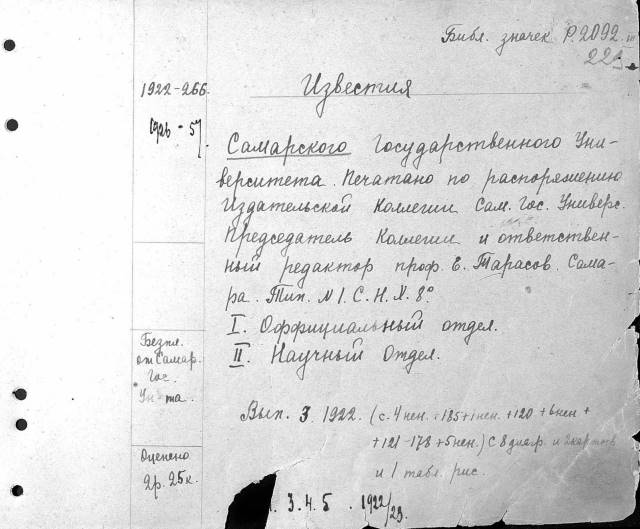 Библ. значек Р.2092
223
1922-266.
1926-57.
Известия
Самарского Государственного Уни-
верситета. Печатано по распоряжению
Издательской Коллегии Сам. Гос. Универс.
Председатель Коллегии и ответствен-
ный редактор проф. Е. Тарасов. Сама-
ра. Тип. №1. С. Н. Х. 8°.
I. Оффициальный отдел.
II. Научный Отдел.
Безпл.
от Самар.
Гос.
Ун-та.
Вып. 3 1922. (с. 4 нен. +185+1 нен. +120 +6 нен +
+121-178 +5 нен.) с 8 диагр. и 2 картов
и 1 табл. рис.
Оценено
2р. 25к.
3. 4. 5. 1922/23.